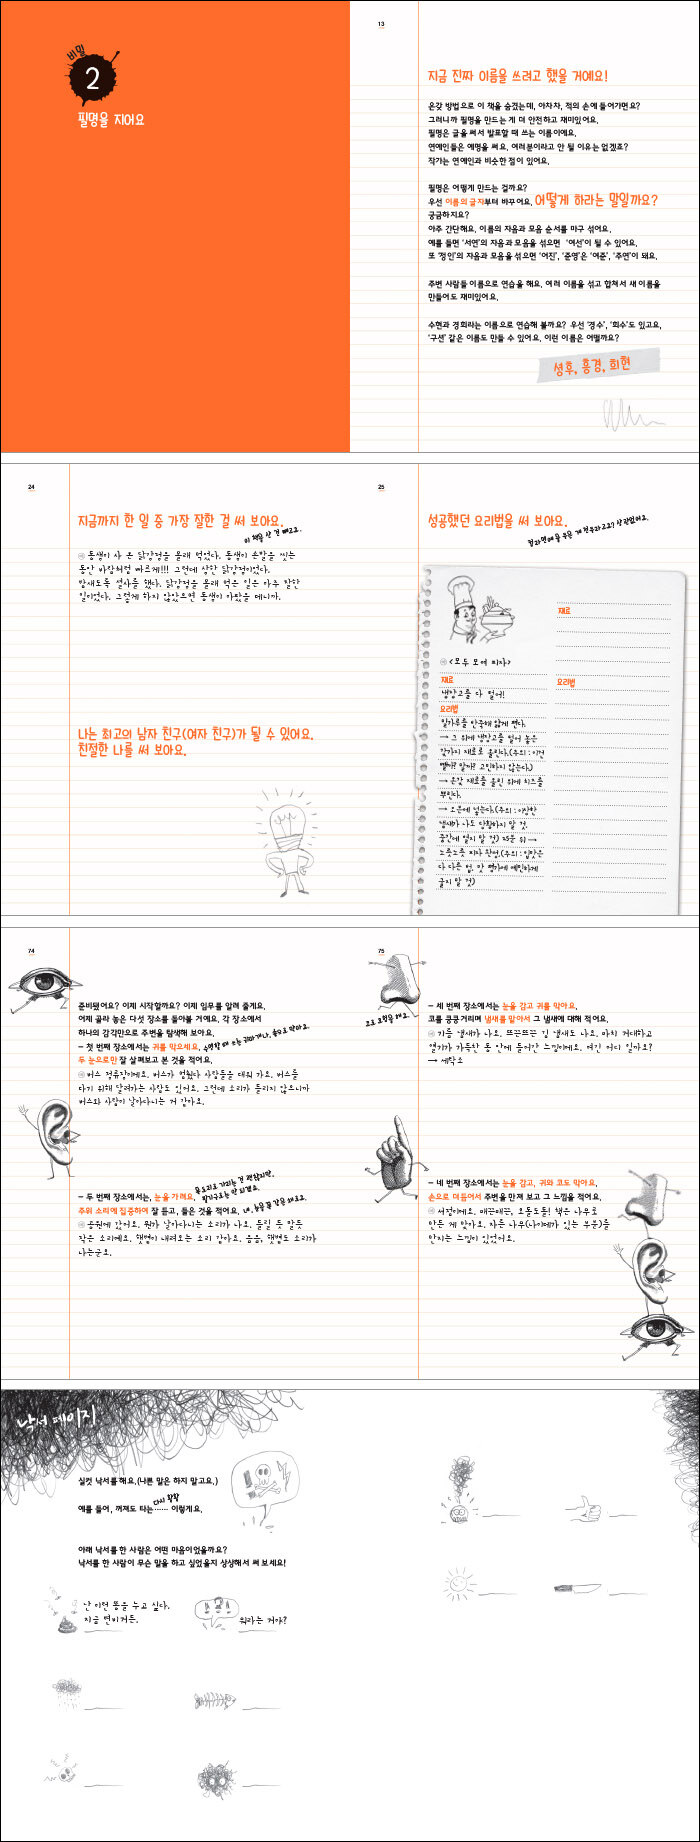 비밀
2
필명을 지어요
13
지금 진짜 이름을 쓰려고 했을 거예요!
온갖 방법으로 이 책을 숨겼는데, 아차차, 적의 손에 들어가면요?
그러니까 필명을 만드는 게 더 안전하고 재미있어요.
필명은 글을 써서 발표할 때 쓰는 이름이에요.
연예인들은 예명을 써요. 여러분이라고 안 될 이유는 없겠죠?
작가는 연예인과 비슷한 점이 있어요.
필명은 어떻게 만드는 걸까요?
우선 이름의 글자부터 바꾸어요. 어떻게 하라는 말일까요?
궁금하지요?
아주 간단해요. 이름의 자음과 모음 순서를 마구 섞어요.
예를 들면 '서연'의 자음과 모음을 섞으면 '여선'이 될 수 있어요.
또 '정인'의 자음과 모음을 섞으면 '어진', '준영'은 '여준', '주연'이 돼요.
주변 사람들 이름으로 연습을 해요. 여러 이름을 섞고 합쳐서 새 이름을
만들어도 재미있어요.
수현과 경희라는 이름으로 연습해 볼까요? 우선 '경수', '희수'도 있고요,
'구선' 같은 이름도 만들 수 있어요. 이런 이름은 어떨까요?
성후, 흥경, 희현
24
지금까지 한 일 중 가장 잘한 걸 써 보아요.
이 책을 산 건 빼고요.
예 동생이 사 온 닭강정을 몰래 먹었다. 동생이 손발을 씻는
동안 바람처럼 빠르게!!! 그런데 상한 닭강정이었다.
밤새도록 설사를 했다. 닭강정을 몰래 먹은 일은 아주 잘한
일이었다. 그렇게 하지 않았으면 동생이 아팠을 테니까.
나는 최고의 남자 친구(여자 친구)가 될 수 있어요.
친절한 나를 써 보아요.
25
성공했던 요리법을 써 보아요.
컵라면에 물 부은 게 전부라고요? 상관없어요.
예 <모두 모여 피자>
재료
냉장고를 다 털어!
요리법
밀가루를 반죽해 얇게 편다.
→ 그 위에 냉장고를 털어 놓은
갖가지 재료로 올린다.(주의 : 이건
뺄까? 말까? 고민하지 않는다.)
→ 온갖 재료를 올린 위에 치즈를
뿌린다.
→ 오븐에 넣는다.(주의 : 이상한
냄새가 나도 당황하지 말 것.
중간에 열지 말 것) 25분 뒤 →
노릇노릇 피자 완성.(주의 : 입맛은
다 다른 법, 맛 평가에 예민하게
굴지 말 것)
재료
요리법
74
준비됐어요? 이제 시작할까요? 이제 임무를 알려 줄게요.
어제 골라 놓은 다섯 장소를 돌아볼 거예요. 각 장소에서
하나의 감각만으로 주변을 탐색해 보아요.
– 첫 번째 장소에서는 귀를 막으세요. 수영할 때 쓰는 귀마개나, 솜으로 막아요.
두 눈으로만 잘 살펴보고 본 것을 적어요.
예 버스 정류장이에요. 버스가 멈췄다 사람들을 태워 가요. 버스를
타기 위해 달려가는 사람도 있어요. 그런데 소리가 들리지 않으니까
버스와 사람이 날아다니는 거 같아요.
– 두 번째 장소에서는, 눈을 가려요. 목도리로 가리는 건 괜찮지만,
주위 소리에 집중하여 잘 듣고, 들은 것을 적어요.
예 공원에 갔어요. 뭔가 날아다니는 소리가 나요. 들릴 듯 말 듯
작은 소리예요. 햇볕이 내려오는 소리 같아요. 음음, 햇볕도 소리가
나는군요.
75
코로 호흡을 해요.
– 세 번째 장소에서는 눈을 감고 귀를 막아요.
코를 킁킁거리며 냄새를 맡아서 그 냄새에 대해 적어요.
예 기름 냄새가 나요. 뜨끈뜨끈 김 냄새도 나요. 마치 거대하고
열기가 가득한 통 안에 들어간 느낌이에요. 여긴 어디 일까요?
→ 세탁소
– 네 번째 장소에서는 눈을 감고, 귀와 코도 막아요.
손으로 더듬어서 주변을 만져 보고 그 느낌을 적어요.
예 서점이에요. 매끈매끈, 오돌토돌! 책은 나무로
만든 게 맞아요. 자른 나무(나이테가 있는 부분)를
만지는 느낌이 있었어요.
낙서 페이지
실컷 낙서를 해요.(나쁜 말은 하지 말고요.)
다시 활활
예를 들어, 꺼져도 타는…… 이렇게요.
아래 낙서를 한 사람은 어떤 마음이었을까요?
낙서를 한 사람이 무슨 말을 하고 싶었을지 상상해서 써 보세요!
난 이런 똥을 누고 싶다.
지금 변비거든.
뭐라는 거야?